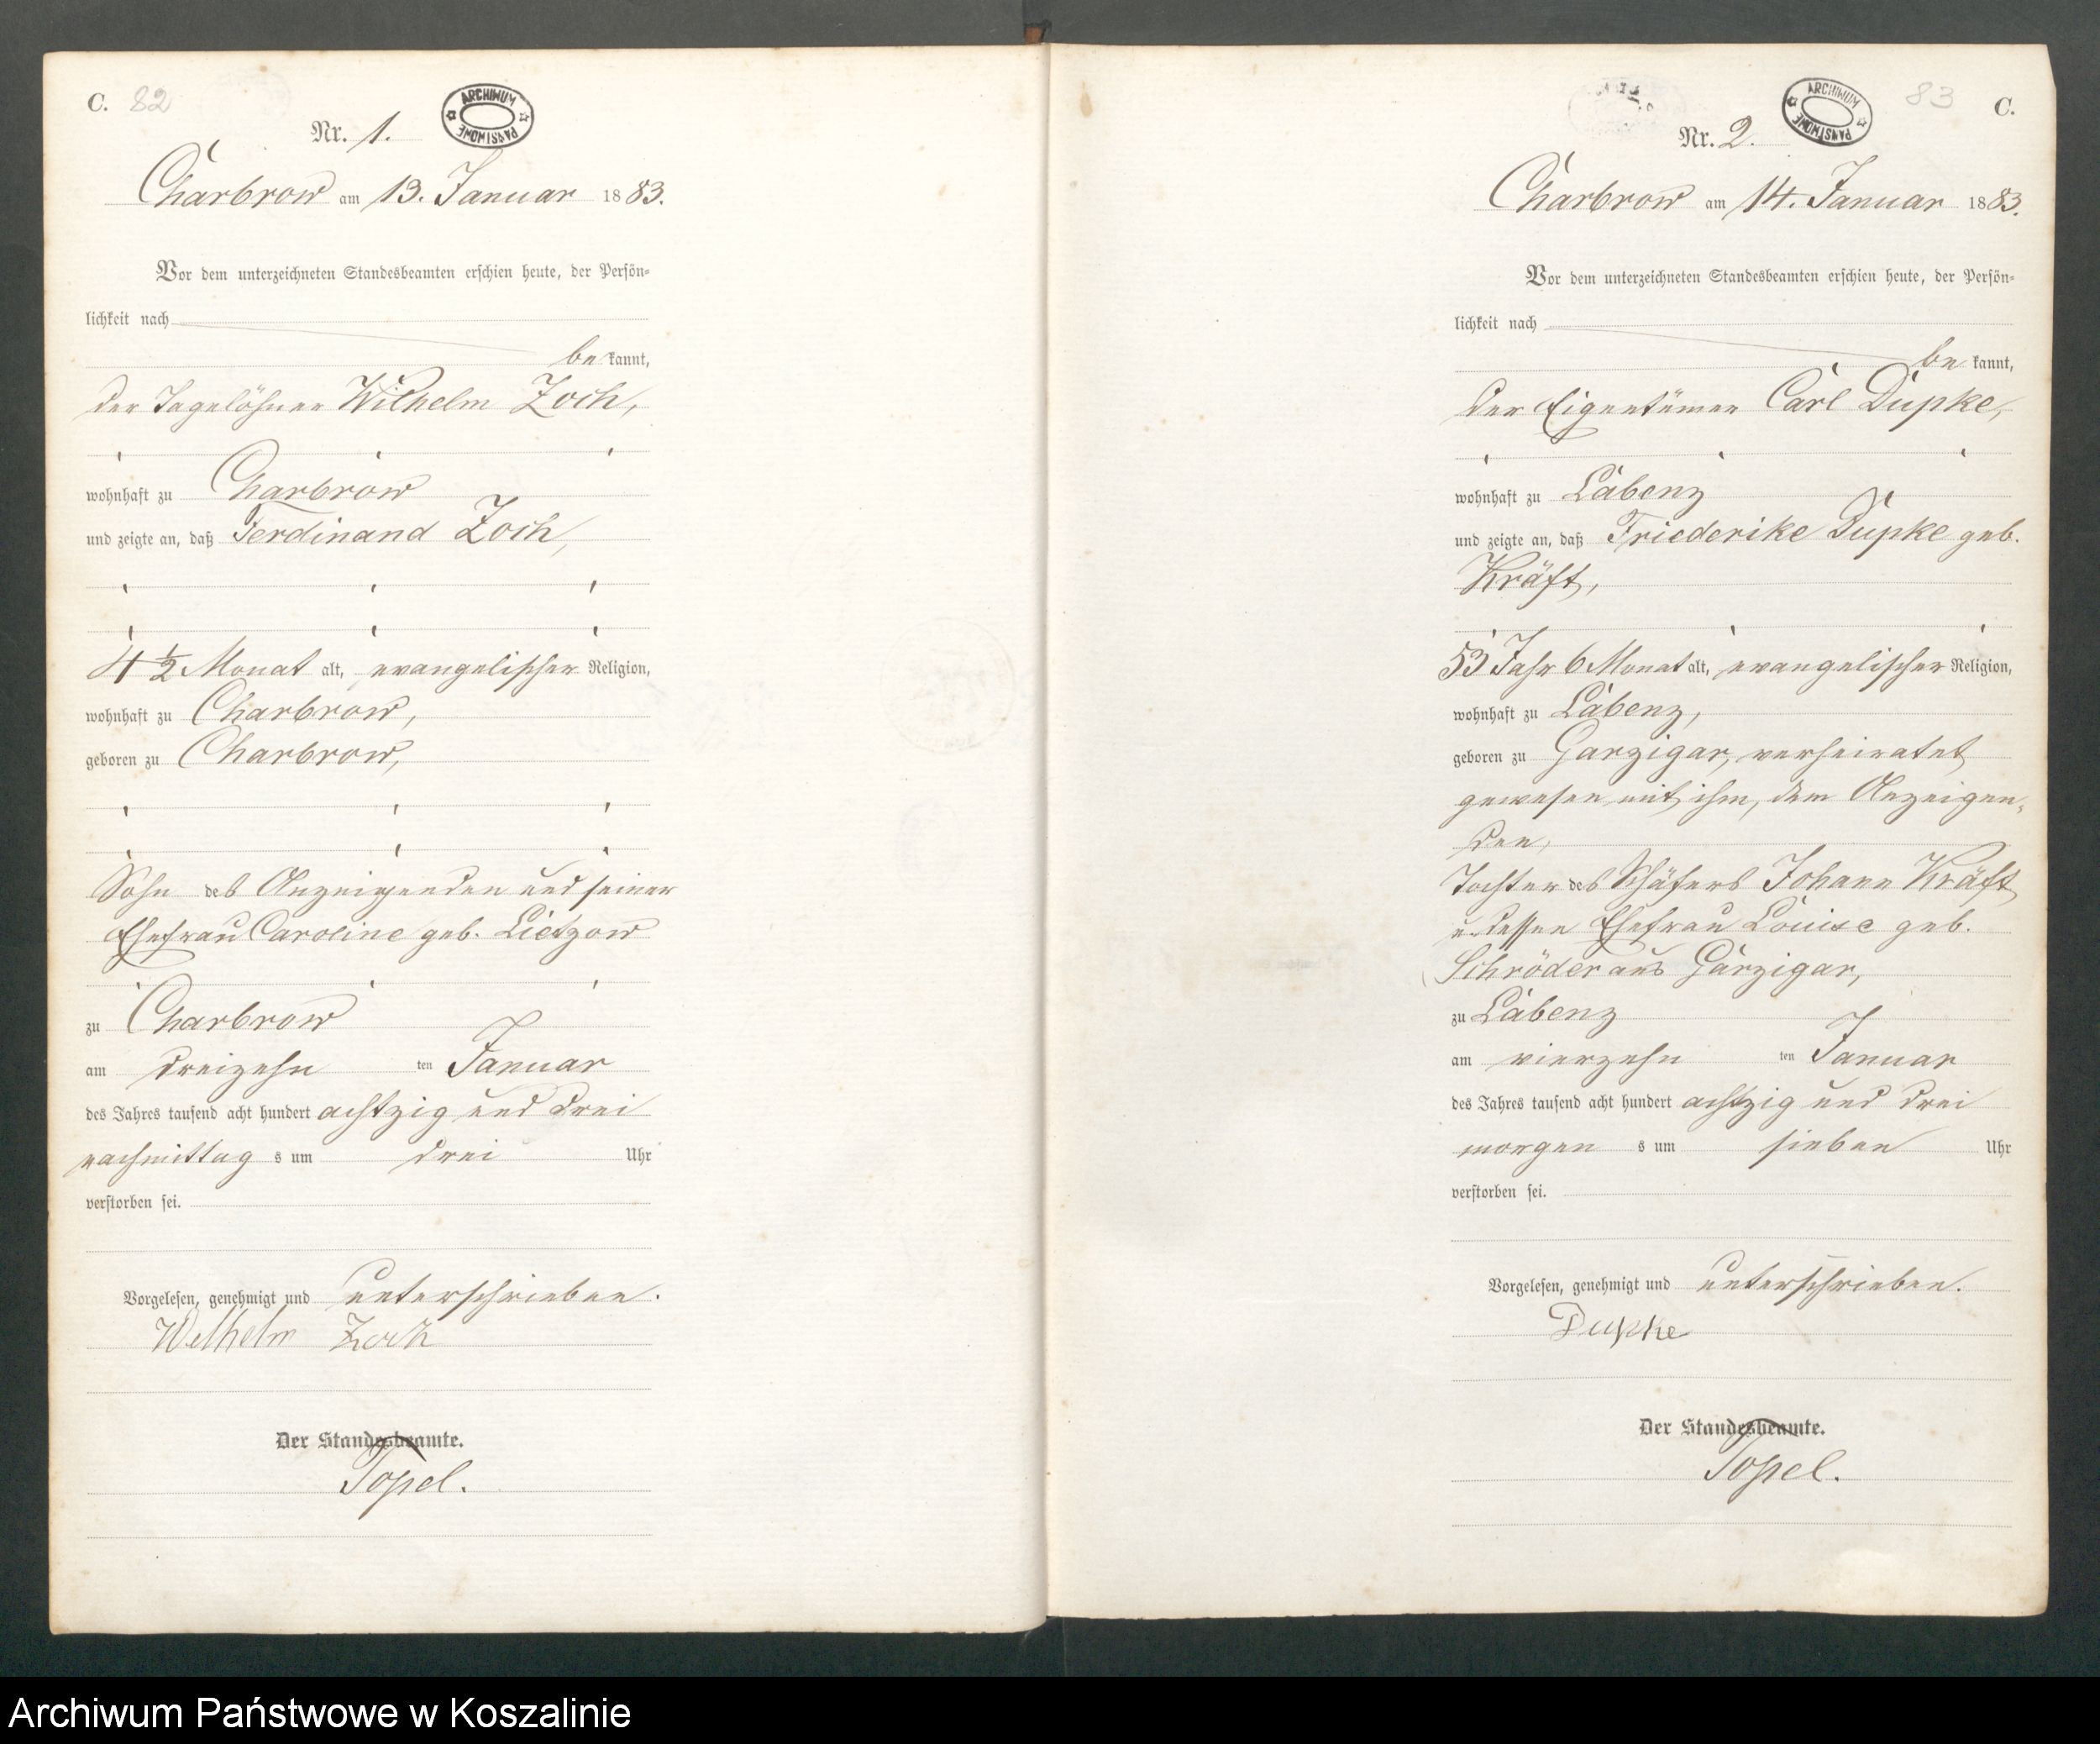 C. 82
ARCHIWUM PAŃSTWOWE
Nr. 1.
Charbrow am 13. Januar 1883.
Vor dem unterzeichneten Standesbeamten erschien heute, der Persön=
lichkeit nach
be kannt,
der Tagelöhner Wilhelm Zoch,
wohnhaft zu Charbrow
und zeigte an, daß Ferdinand Zoch,
4 1/2 Monat alt, evangelischer Religion,
wohnhaft zu Charbrow,
geboren zu Charbrow,
Sohn des Anzeigenden und seiner
Ehefrau Caroline geb. Lietzow
zu Charbrow
am dreizehn ten Januar
des Jahres tausend acht hundert achtzig und drei
nachmittag s um drei Uhr
verstorben sei.
Vorgelesen, genehmigt und unterschrieben.
Wilhelm Zoch
Der Standesbeamte.
Topel.
83 C.
ARCHIWUM PAŃSTWOWE
Nr. 2.
Charbrow am 14. Januar 1883.
Vor dem unterzeichneten Standesbeamten erschien heute, der Persön=
lichkeit nach
be kannt,
der Eigentümer Carl Dupke,
wohnhaft zu Labenz
und zeigte an, daß Friederike Dupke geb.
Kräft,
53 Jahr 6 Monat alt, evangelischer Religion,
wohnhaft zu Labenz,
geboren zu Garzigar, verheiratet
gewesen mit ihm, dem Anzeigen=
den,
Tochter des Schäfers Johann Kräft
u. dessen Ehefrau Louise geb.
Schröder aus Garzigar,
zu Labenz
am vierzehn ten Januar
des Jahres tausend acht hundert achtzig und drei
morgen s um sieben Uhr
verstorben sei.
Vorgelesen, genehmigt und unterschrieben.
Dupke
Der Standesbeamte.
Topel.
Archiwum Państwowe w Koszalinie